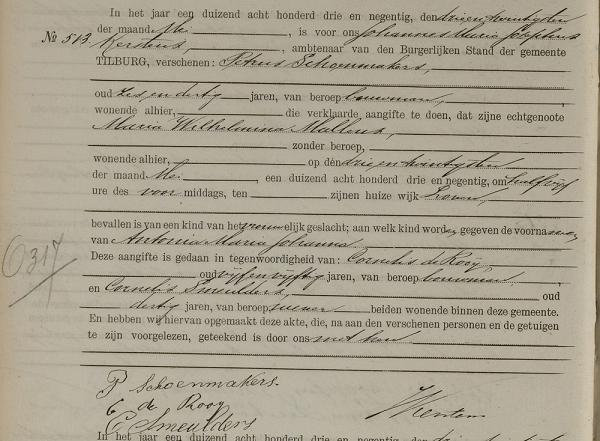 In het jaar een duizend acht honderd drie en negentig, den drie en twintigsten
der maand Mei, is voor ons Johannes Maria Josephus
No 513 Kerstens, ambtenaar van den Burgerlijken Stand der gemeente
TILBURG, verschenen: Petrus Schoenmakers,
oud zes en dertig jaren, van beroep bouwman,
wonende alhier, die verklaarde, aangifte te doen, dat zijne echtgenoote
Maria Wilhelmina Mallens,
zonder beroep,
wonende alhier, op den drie en twintigsten
der maand Mei, een duizend acht honderd drie en negentig, om half vijf
ure des voor middags, ten zijnen huize wijk
bevallen is van een kind van het vrouwelijk geslacht; aan welk kind worden gegeven de voornamen
van Antonia Maria Johanna
Deze aangifte is gedaan in tegenwoordigheid van: Cornelis de Rooij,
oud vijf en vijftig jaren, van beroep bouwman,
en Cornelis Smeulders, oud
0317
dertig jaren, van beroep wever beiden wonende binnen deze gemeente.
En hebben wij hiervan opgemaakt deze akte, die, na aan den verschenen personen en de getuigen
te zijn voorgelezen, geteekend is door ons met hen
P Schoenmakers.
C de Rooy
C Smeulders
In het jaar een duizend acht honderd drie en negentig, den